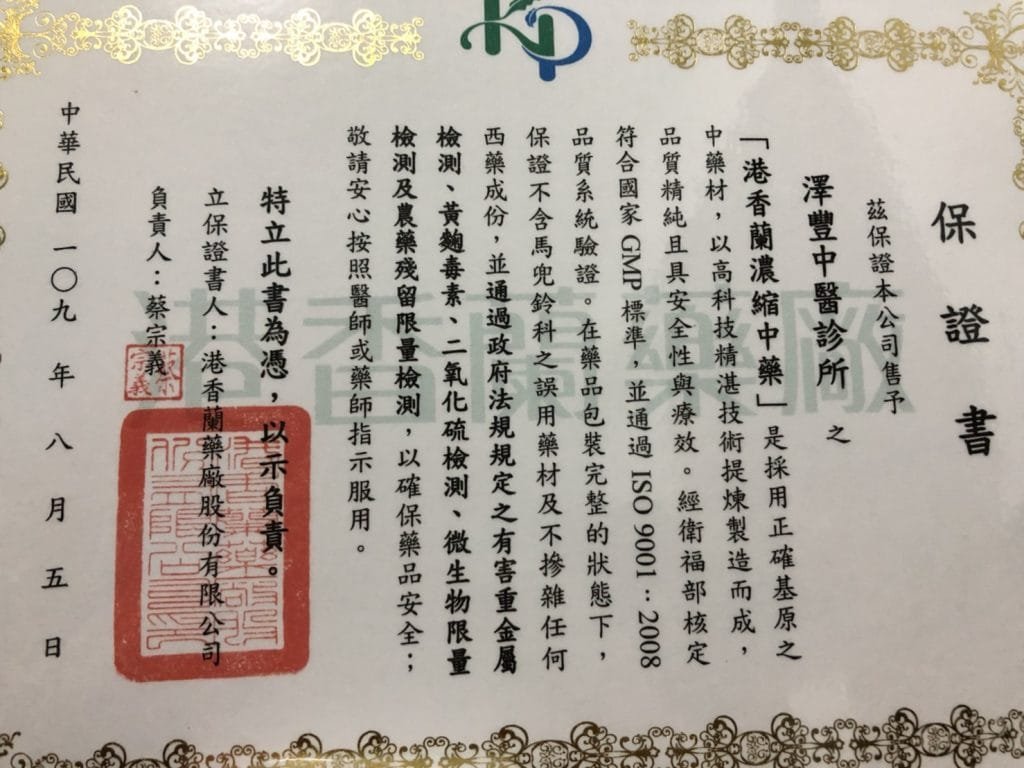 KP
保證書
茲保證本公司售予
澤豐中醫診所 之
「港香蘭濃縮中藥」是採用正確基原之
中藥材，以高科技精湛技術提煉製造而成，
品質精純且具安全性與療效。經衛福部核定
符合國家 GMP 標準，並通過 ISO 9001：2008
品質系統驗證。在藥品包裝完整的狀態下，
保證不含馬兜鈴科之誤用藥材及不摻雜任何
西藥成份，並通過政府法規規定之有害重金屬
檢測、黃麴毒素、二氧化硫檢測、微生物限量
檢測及農藥殘留限量檢測，以確保藥品安全；
敬請安心按照醫師或藥師指示服用。
特立此書為憑，以示負責。
立保證書人：港香蘭藥廠股份有限公司
負責人：蔡宗義
蔡宗義
中華民國一〇九年八月五日
港香蘭藥廠